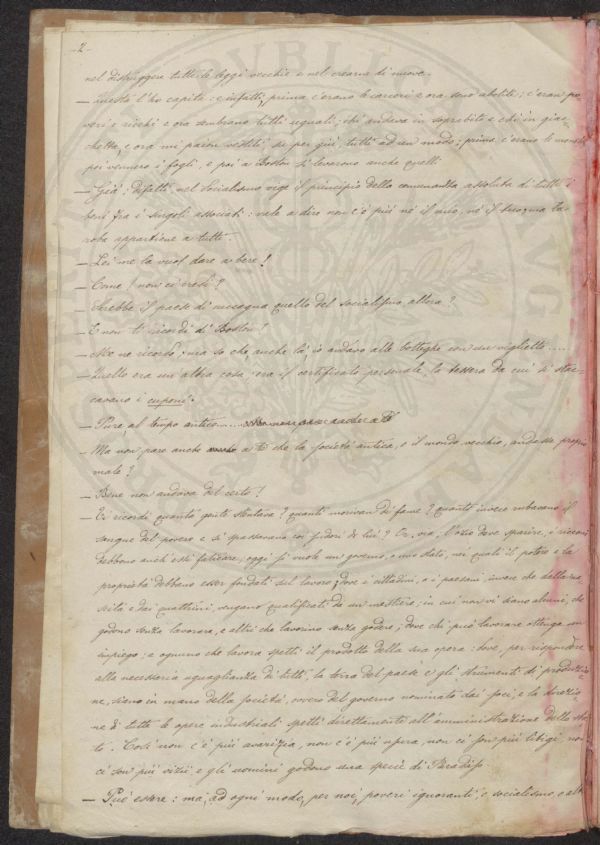 -2-
nel distruggere tutte le leggi vecchie e nel crearne di nuove.
— Questo l'ho capito: e infatti, prima c'erano le carceri e ora sono abolite; c'eran po-
veri e ricchi e ora sembrano tutti uguali; chi andava in soprabito e chi in giac-
chetta, e ora mi paion vestiti, su per giù, tutti ad un modo; prima c'erano le monete
poi vennero i fogli, e poi a Boston si levarono anche quelli.
— Già; difatti, nel socialismo vige il principio della comunanza assoluta di tutti i
beni fra i singoli associati: vale a dire non c'è più nè il mio, nè il tuo, ma la
roba appartiene a tutti.
— Lei me la vuol dare a bere!
— Come! non ci credi?
— Sarebbe il paese di cuccagna quello del socialismo allora?
— E non ti ricordi di Boston?
— Me ne ricordo; ma so che anche là io andavo alle botteghe con un viglietto.....
— Quello era un'altra cosa, era il certificato personale, la tessera da cui si stac-
cavano i cuponi.
— Pure al tempo antico....
— Ma non pare anche a te che la società antica, o il mondo vecchio, andasse proprio
male?
— Bene non andava del certo!
— Ti ricordi quanta gente stentava? quanti morivan di fame? quanti invece rubavano il
sangue del povero e si spassavano coi sudori di lui? Or, via, l'ozio deve sparire, i ricconi
debbono anch'essi faticare, oggi si vuole un governo, e uno stato, nei quali il potere e la
proprietà debbano esser fondati sul lavoro; dove i cittadini, o i paesani, invece che dalla na-
scita e dai quattrini, vengano qualificati da un mestiere; in cui non vi siano alcuni, che
godono senza lavorare, e altri che lavorino senza godere; dove chi può lavorare ottenga un
impiego; e ognuno che lavora spetti il prodotto della sua opera: dove, per rispondere
alla necessaria uguaglianza di tutti, la terra del paese e gli strumenti di produzio-
ne, siano in mano della società, ovvero del governo nominato dai soci, e la direzio-
ne di tutte le opere industriali spetti direttamente all'amministrazione dello sta-
to. Così non c'è più avarizia, non c'è più usura, non ci son più litigi, non
ci son più vizii e gli uomini godono una specie di Paradiso.
— Può essere: ma, ad ogni modo, per noi, poveri ignoranti, e socialismo, e